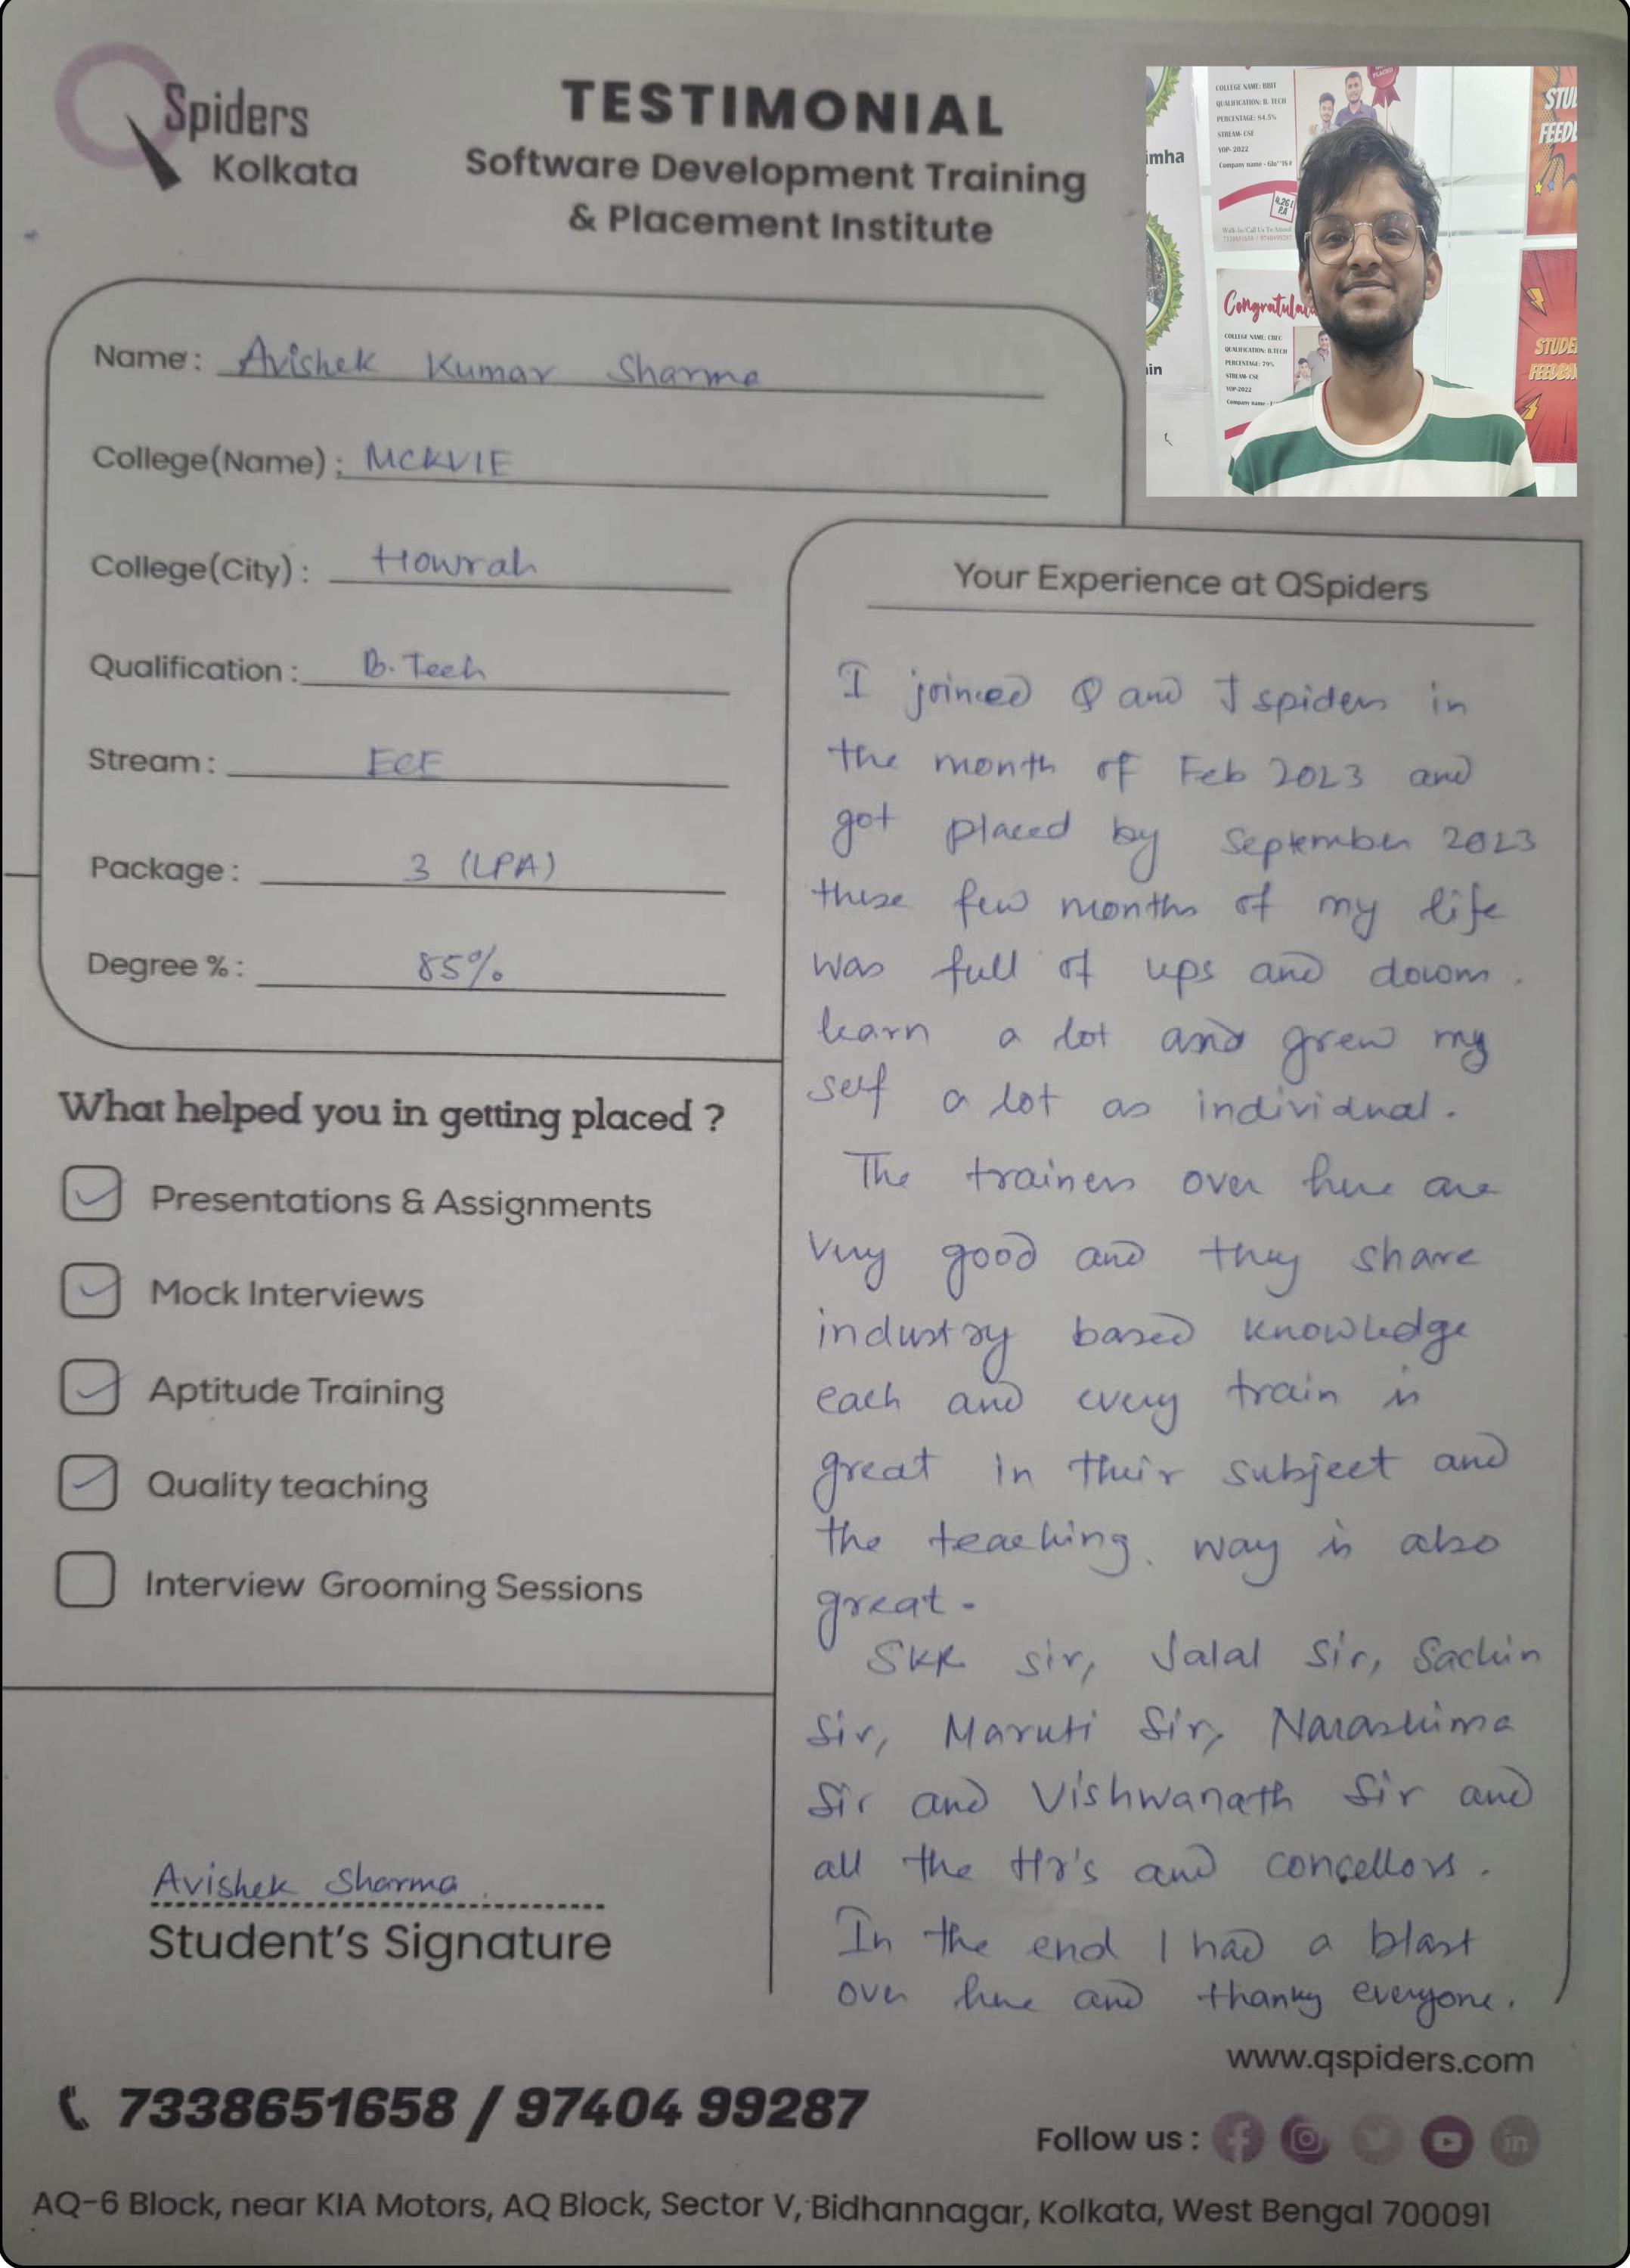 QSpiders
Kolkata
TESTIMONIAL
Software Development Training
& Placement Institute
imha
in
COLLEGE NAME: BBIT
QUALIFICATION: B. TECH
PERCENTAGE: 84.5%
STREAM- CSE
YOP- 2022
PLACED
4.26 L
P.A
Walk-In/Call Us To Attend
7338651658 / 9740499287
COLLEGE NAME: CBEC
QUALIFICATION: B.TECH
PERCENTAGE: 79%
STREAM- CSE
YOP-2022
Company name -
Name: Avishek Kumar Sharma
College(Name): MCKVIE
College(City): Howrah
Qualification: B.Tech
Stream: ECE
Package: 3 (LPA)
Degree %: 85%
What helped you in getting placed ?
Presentations & Assignments
Mock Interviews
Aptitude Training
Quality teaching
Interview Grooming Sessions
Avishek Sharma
Student's Signature
Your Experience at QSpiders
I joined Q and J spiders in
the month of Feb 2023 and
got placed by September 2023
these few months of my life
was full of ups and downs.
learn a lot and grew my
self a lot as individual.
The trainers over here are
very good and they share
industry based knowledge
each and every train is
great in their subject and
the teaching. way is also
great.
SKR sir, Jalal Sir, Sachin
Sir, Maruti Sir, Narashima
Sir and Vishwanath Sir and
all the Hr's and concellors.
In the end I had a blast
over here and thanky everyone.
www.qspiders.com
7338651658 / 97404 99287
Follow us :
AQ-6 Block, near KIA Motors, AQ Block, Sector V, Bidhannagar, Kolkata, West Bengal 700091